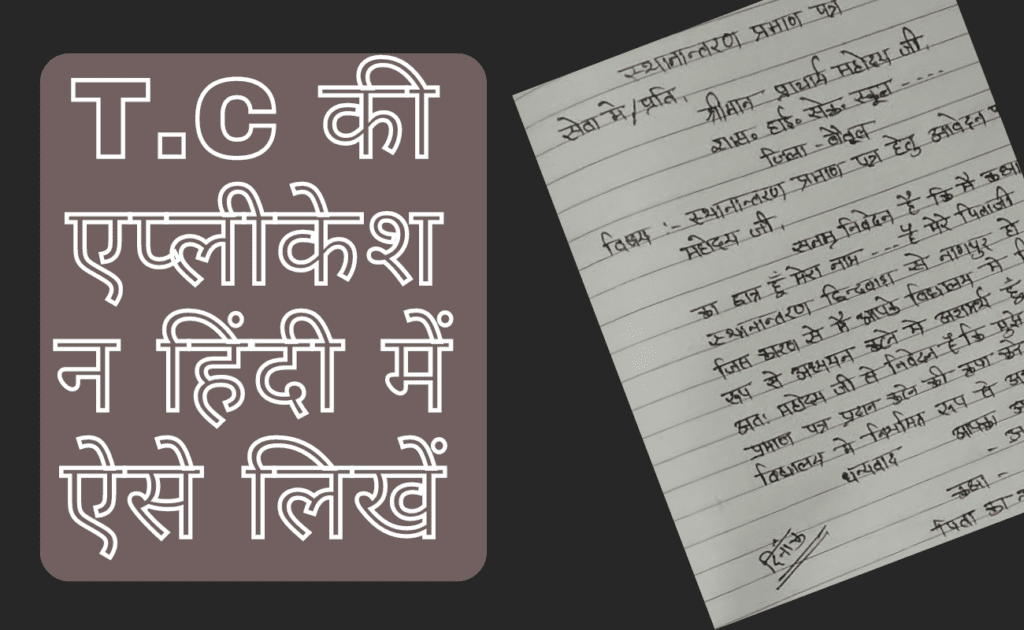 T.C की
एप्लीकेश
न हिंदी में
ऐसे लिखें
स्थानान्तरण प्रमाण पत्र
सेवा मे/प्रति,
श्रीमान प्राचार्य महोदय जी,
शास. हाई. सेके. स्कूल ....
जिला - बैतूल
विषय :- स्थानान्तरण प्रमाण पत्र हेतु आवेदन
महोदय जी,
सनम्र निवेदन है कि मै कक्षा
का छात्र हूँ मेरा नाम ....है मेरे पिताजी
स्थानान्तरण छिन्दवाडा से नागपुर हो
जिस कारण से मै आपके विद्यालय मे
रूप से अध्ययन करने मे असमर्थ हूँ
अतः महोदय जी से निवेदन है कि मुझे
प्रमाण पत्र प्रदान करने की कृपा करे
विद्यालय मे नियमित रूप से
धन्यवाद
आपका
कक्षा -
पिता का
दिनांक